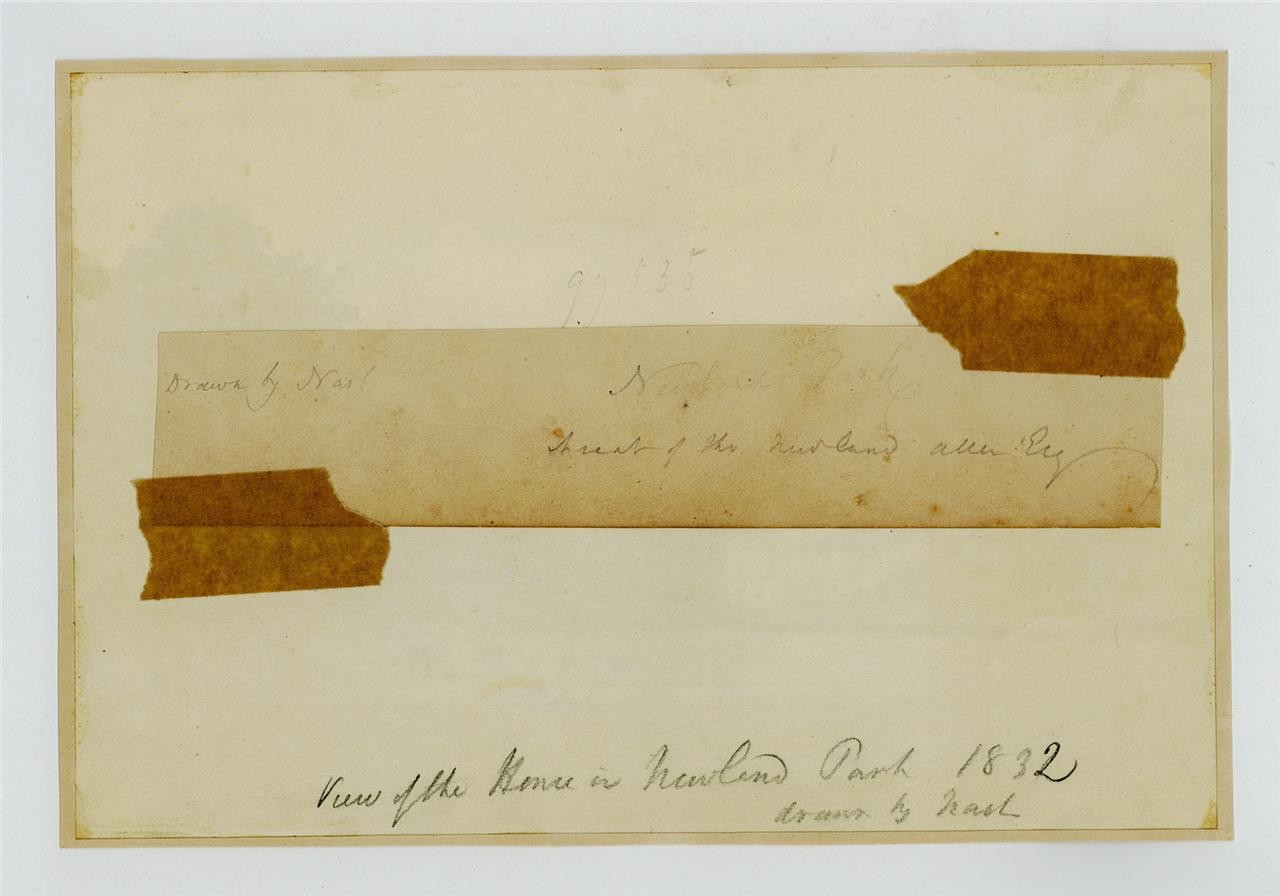 gy 535
Drawn by Nash
Newland Park
A seat of the Newland Allen Esq
View of the House in Newland Park 1832
drawn by Nash